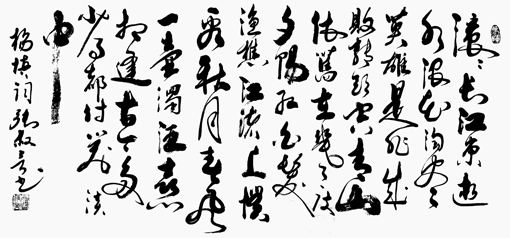 滚〻长江东逝
水浪花淘尽
英雄是非成
败转头空青山
依舊在幾度
夕陽红白髮
渔樵江渚上惯
看秋月春风
一壶浊酒喜
相逢古今多
少事都付笑谈
中
杨慎词